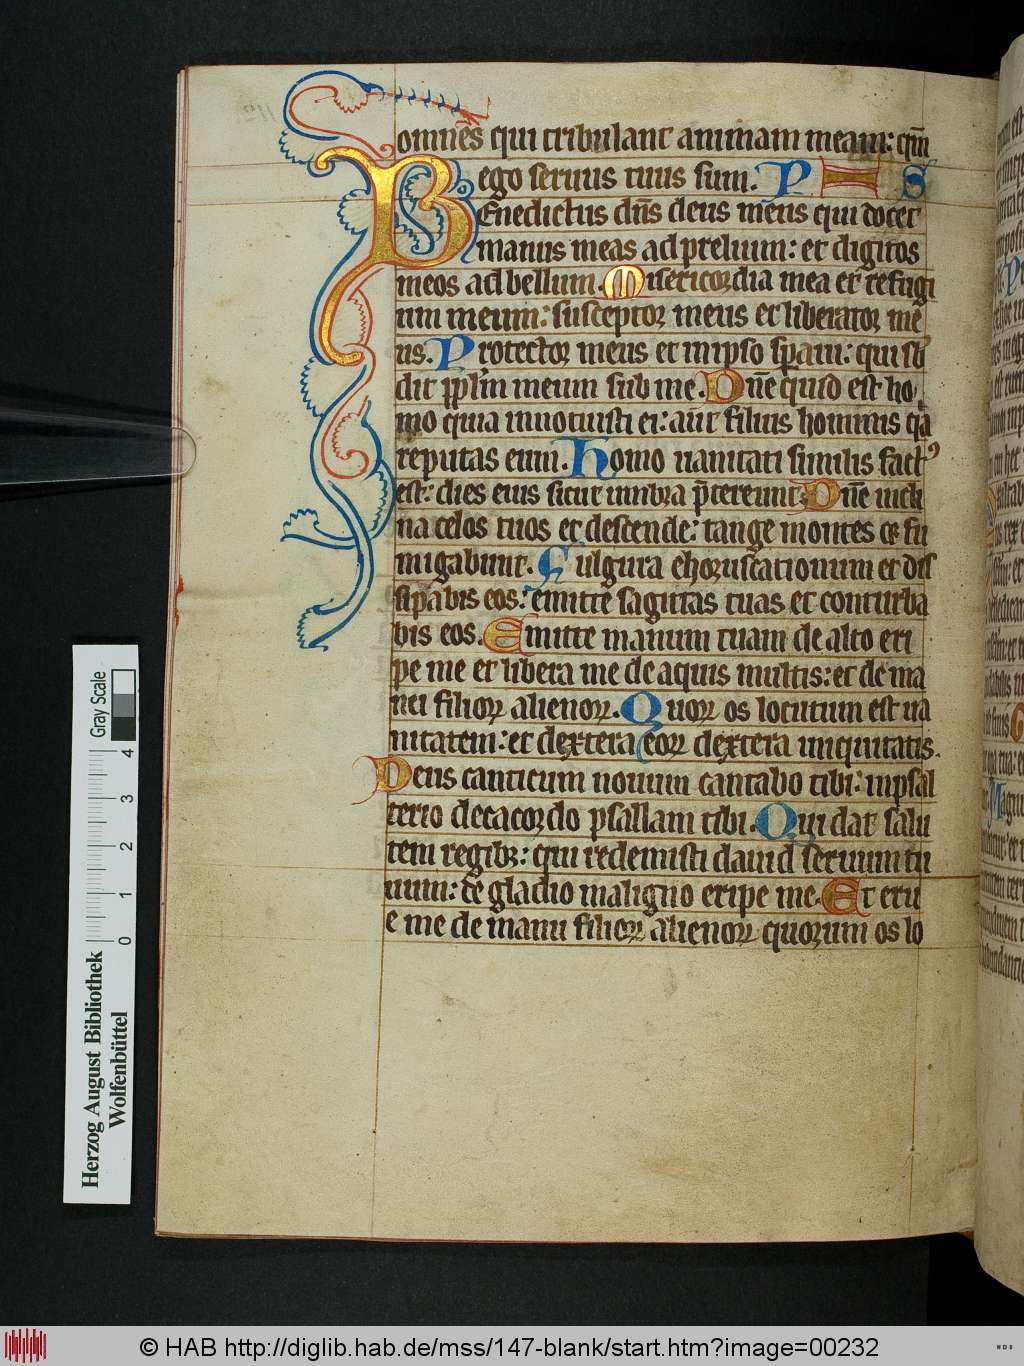 omnes qui tribulant animam meam: qm̄
ego seruus tuus sum. P I S
BEnedictus dn̄s deus meus qui docet
manus meas ad prelium: et digitos
meos ad bellum. Misericordia mea et refugi
um meum: susceptor meus et liberator me
us. Protector meus et in ipso sp̄aui: qui sb̄
dit pp̄lm meum sub me. Dn̄e quid est ho
mo quia innotuisti ei: aut̄ filius hominis q̄a
reputas eum. Homo uanitati similis fact᾿
est: dies eius sicut umbra p̄tereunt. Dn̄e incli
na celos tuos et descende: tange montes et fu
migabunt. Fulgura choruscationum et dis
sipabis eos: emitte sagittas tuas et conturba
bis eos. Emitte manum tuam de alto eri
pe me et libera me de aquis multis: et de ma
nu filioꝝ alienoꝝ. Quoꝝ os locutum est ua
nitatem: et dextera eoꝝ dextera iniquitatis.
Deus canticum nouum cantabo tibi: in psal
terio decacordo psallam tibi. Qui das salu
tem regibꝫ: qui redemisti dauid seruum tu
uum: de gladio maligno eripe me. Et eru
e me de manu filioꝝ alienoꝝ quorum os lo
Herzog August Bibliothek
Wolfenbüttel
0 1 2 3 4
Gray Scale
© HAB http://diglib.hab.de/mss/147-blank/start.htm?image=00232